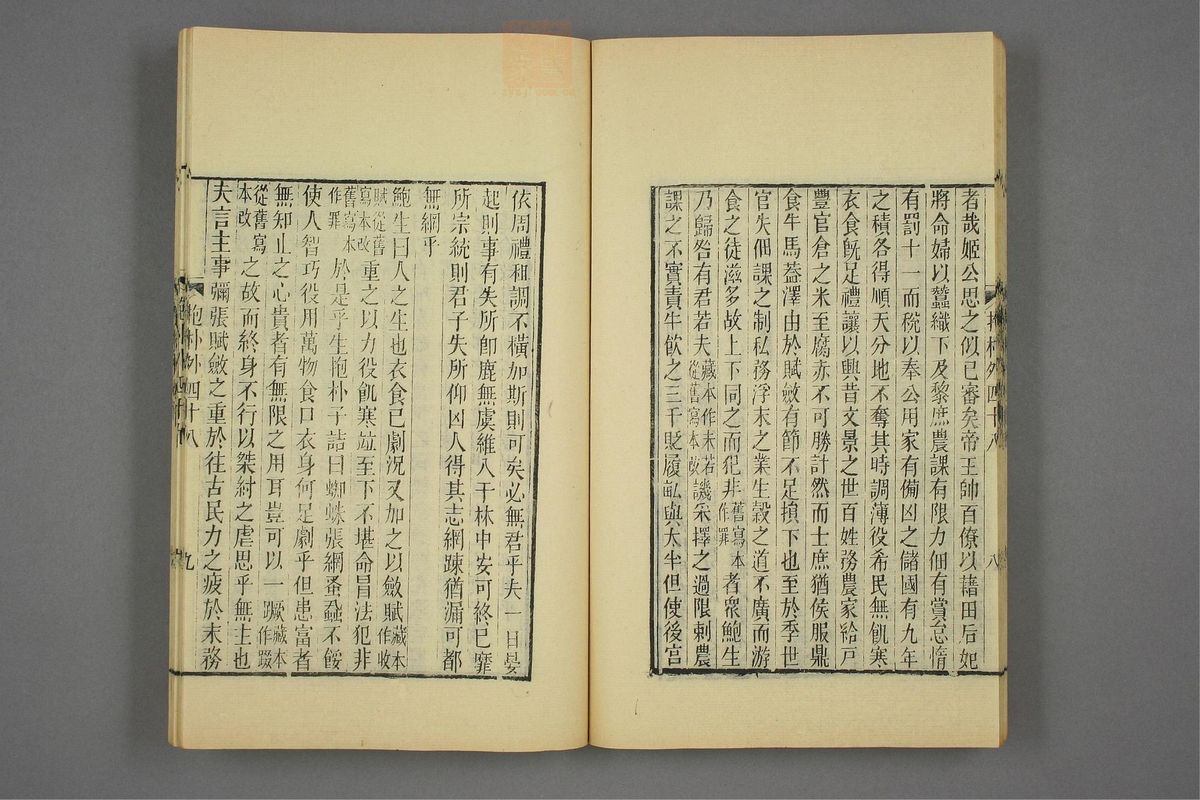 者哉姬公思之似已審矣帝王帥百僚以藉田后妃
將命婦以蠶織下及黎庶農課有限力佃有賞怠惰
有罰十一而稅以奉公用家有備凶之儲國有九年
之積各得順天分地不奪其時調薄役希民無飢寒
衣食旣足禮讓以興昔文景之世百姓務農家給戶
豐官倉之米至腐赤不可勝計然而士庶猶侯服鼎
食牛馬蓋澤由於賦斂有節不足損下也至於季世
官失佃課之制私務浮末之業生穀之道不廣而游
食之徒滋多故上下同之而犯非舊寫本作罪者衆鮑生
乃歸咎有君若夫藏本作末若從舊寫本改譏采擇之過限刺農
課之不實責牛飮之三千貶履畝與太半但使後宮
抱朴外四十八
八
依周禮租調不橫加斯則可矣必無君乎夫一日晏
起則事有失所卽鹿無虞維入于林中安可終已靡
所宗統則君子失所仰凶人得其志網踈猶漏可都
無網乎
鮑生曰人之生也衣食已劇況又加之以斂賦藏本作收
賦從舊寫本改重之以力役飢寒竝至下不堪命冒法犯非
舊寫本作罪於是乎生抱朴子詰曰蜘蛛張網蚤蝨不餒
使人智巧役用萬物食口衣身何足劇乎但患富者
無知止之心貴者有無限之用耳豈可以一蹶藏本作蹑
從舊寫本改之故而終身不行以桀紂之虐思乎無主也
夫言主事彌張賦斂之重於往古民力之疲於末務
抱朴外四十八
九